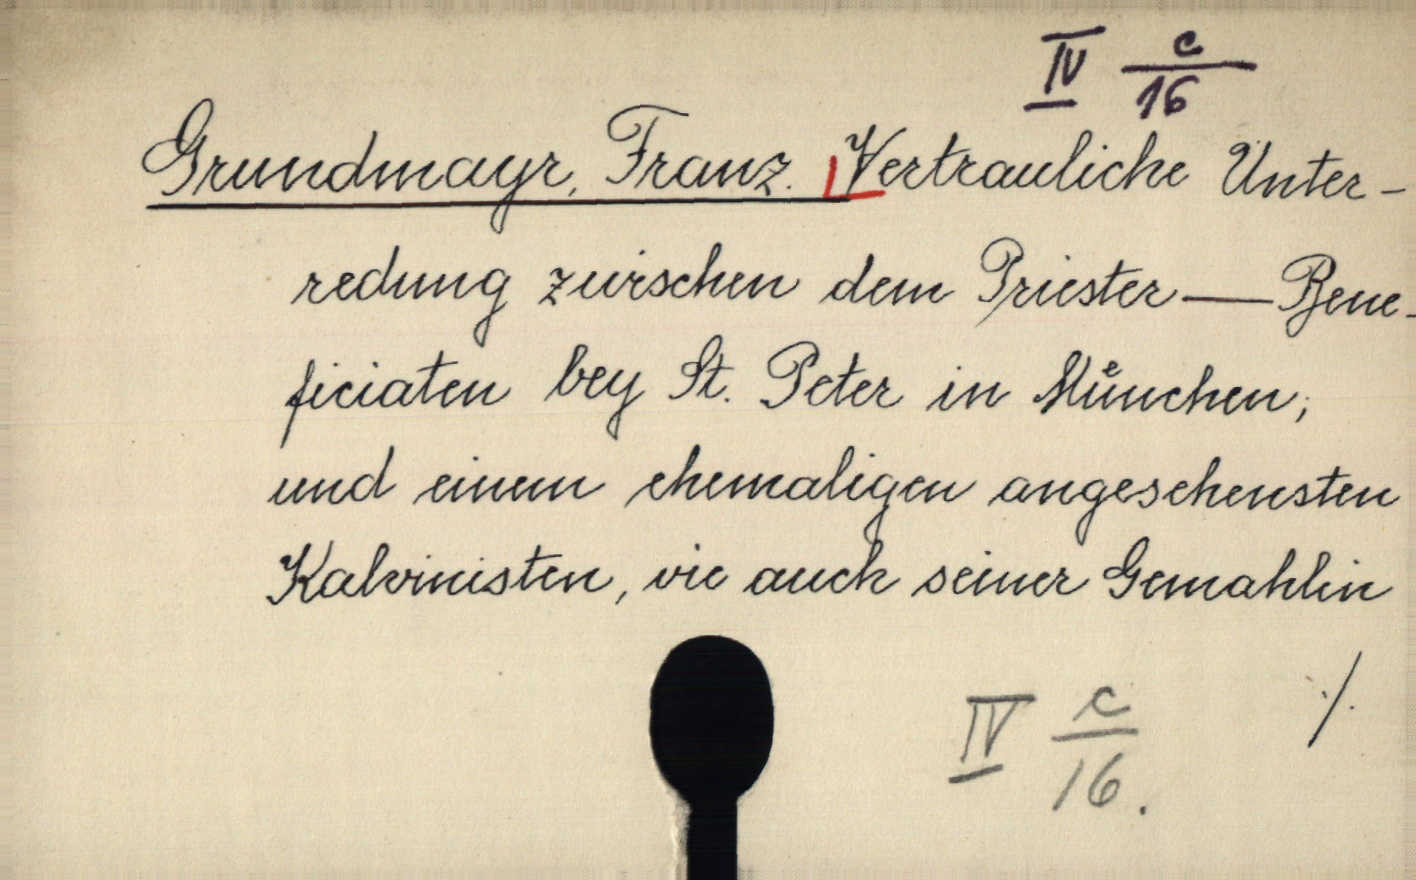 IV c/16
Grundmayr, Franz. Vertrauliche Unter-
redung zwischen dem Priester — Bene-
ficiaten bey St. Peter in München;
und einem ehemaligen angesehensten
Kalvinisten, vie auch seiner Gemahlin
./.
IV c/16.